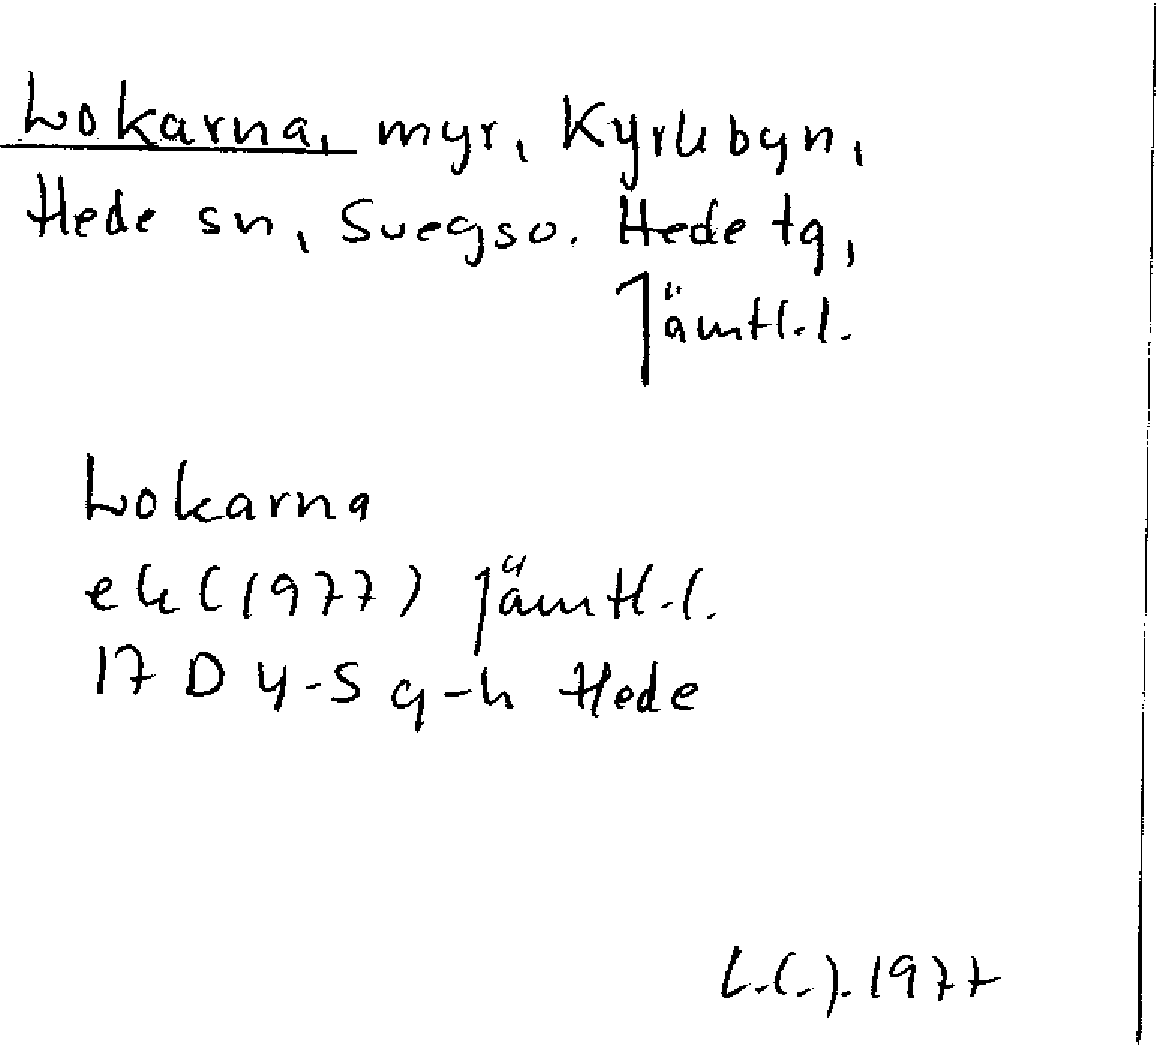 Lokarna, myr, Kyrkbyn,
Hede sn, Svegs o. Hede tg,
Jämtl.l.
Lokarna
ek (1977) Jämtl.l.
17 D 4-5 g-h Hede
1977